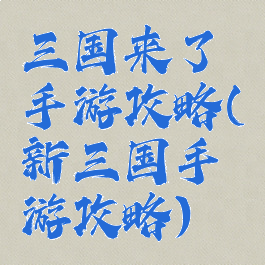 三国来了
手游攻略(
新三国手
游攻略)